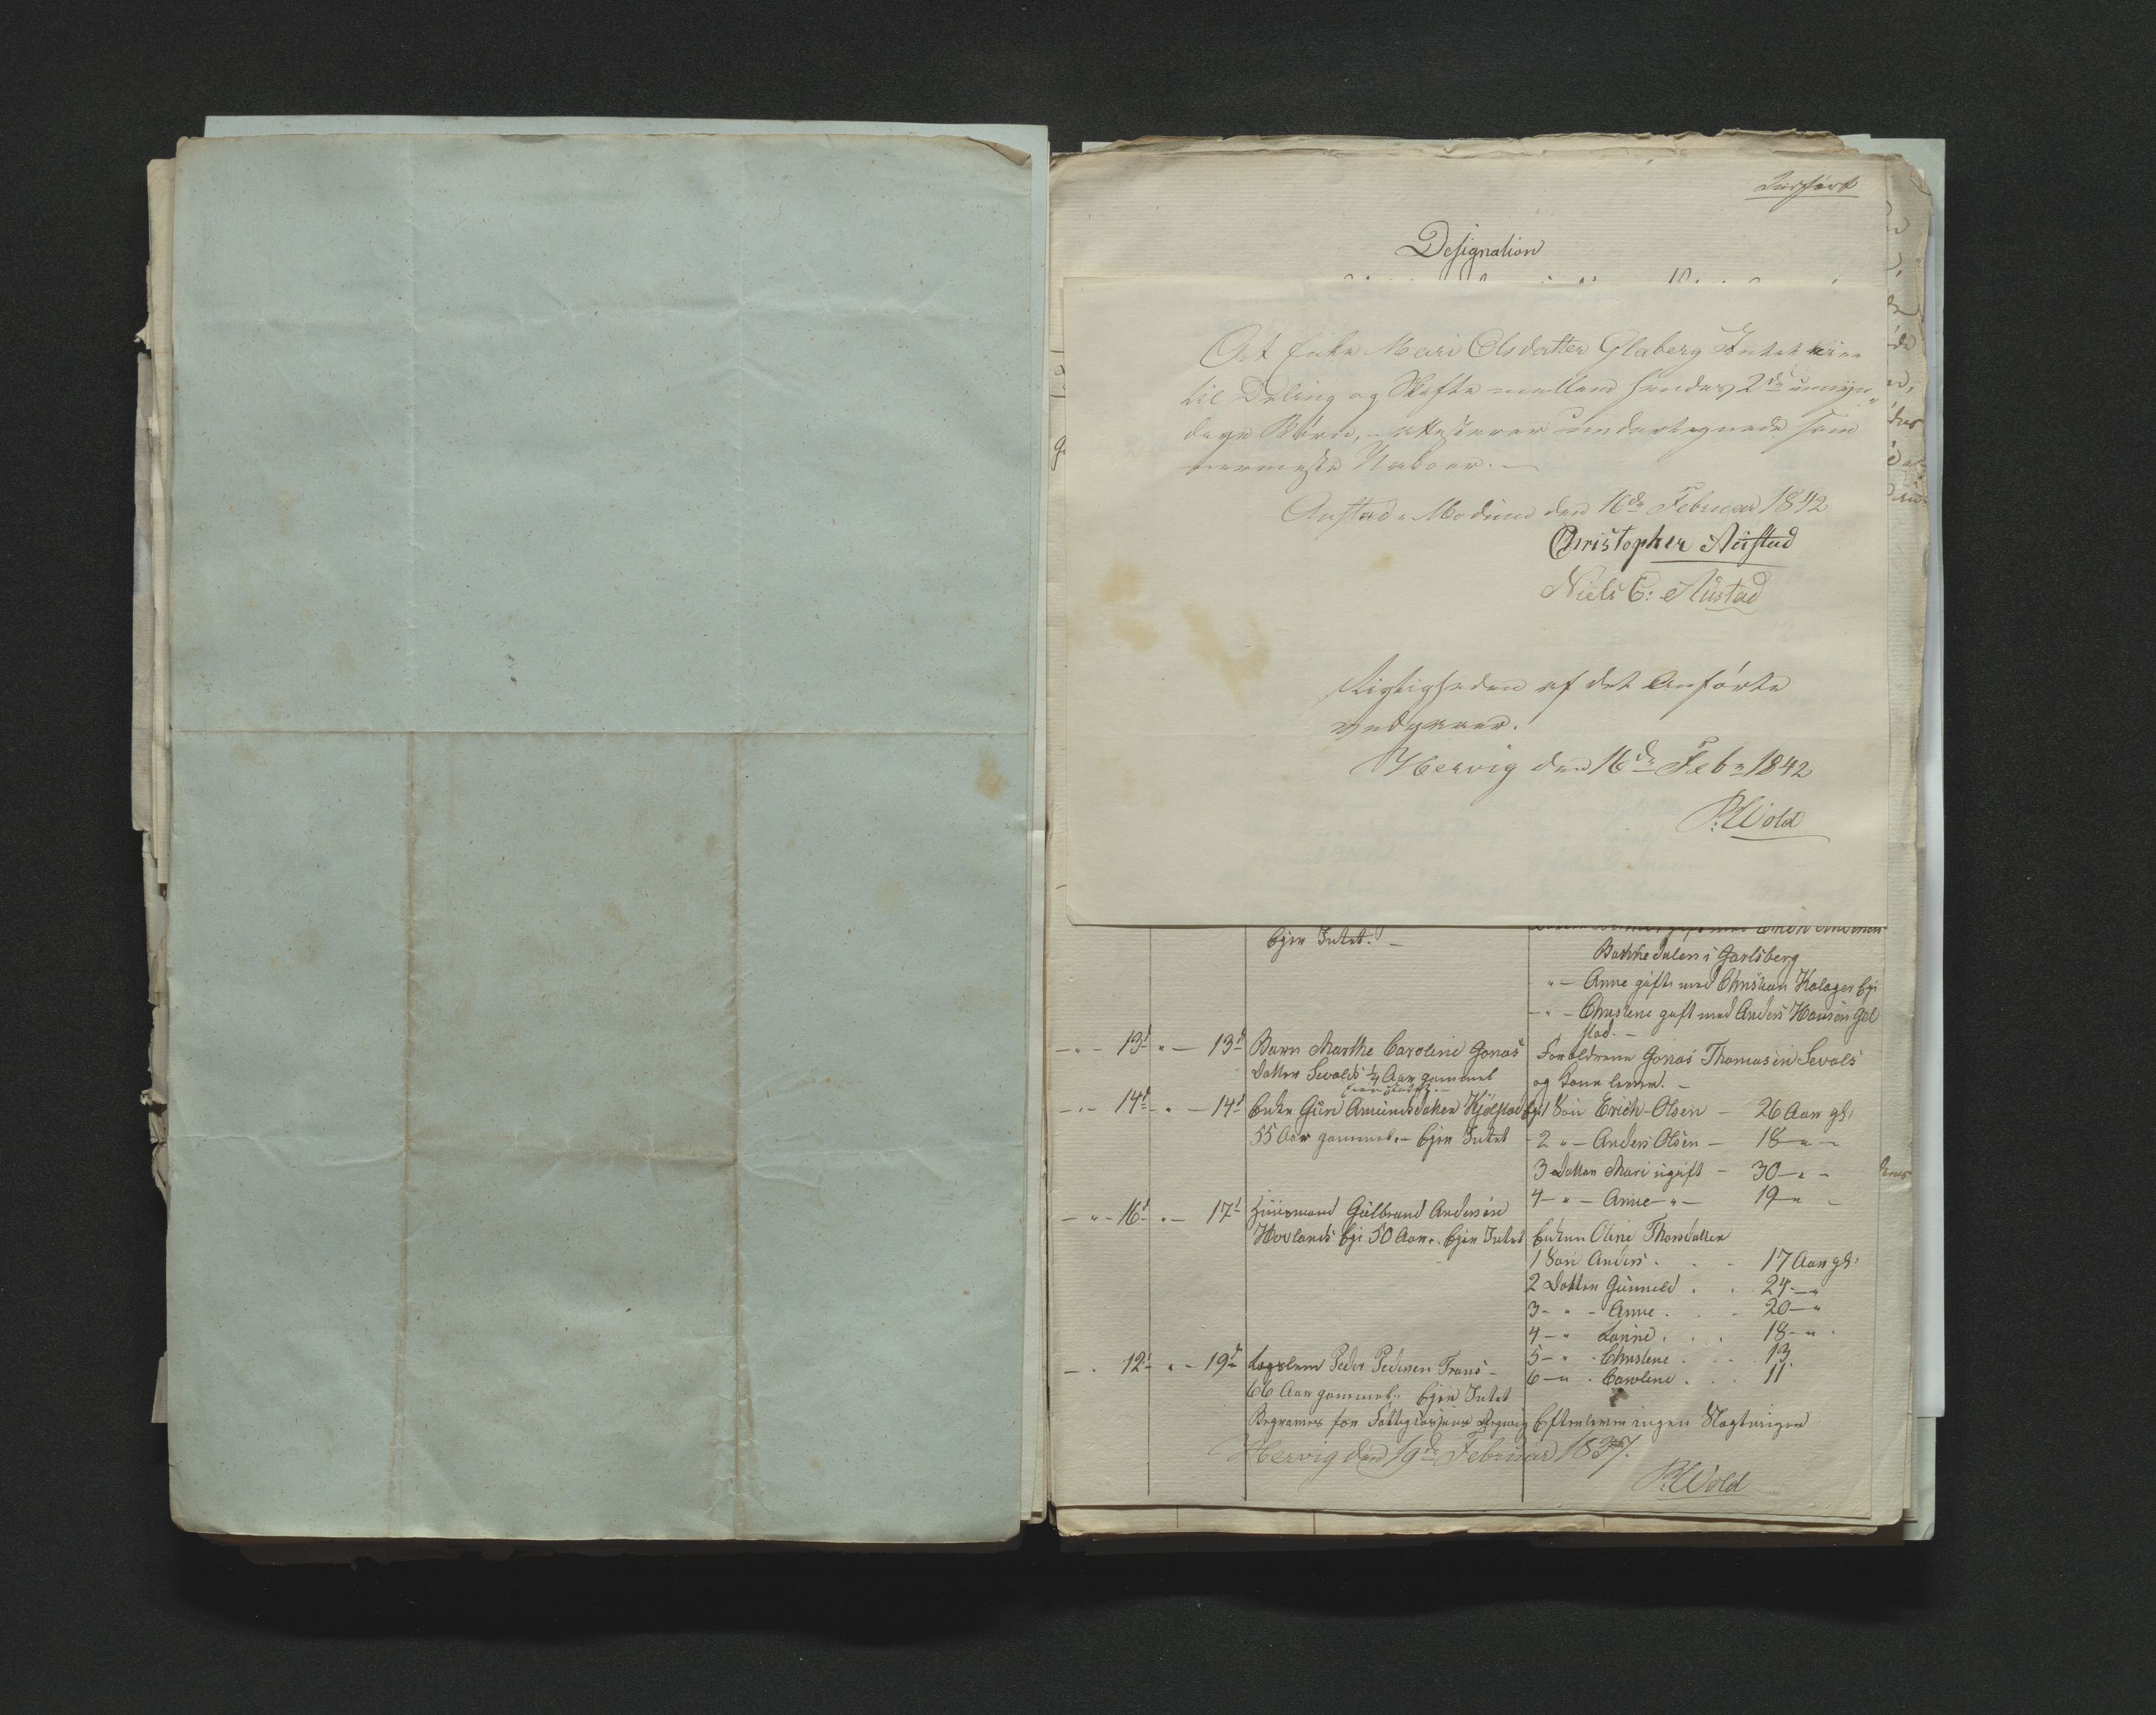 Indført
Designation
At Enke Mari Olsdatter Glaberg Intet eier
til Deling og Skifte mellem hendes 2de umyn„
dige Børn, attesterer undertegnede som
nærmeste Naboer.
Austad i Modum den 16de Februar 1842
Christopher Austad
Niels C: Austad
Rigtigheden af det Anførte
vedgaaes.
Hervig den 16de Febr 1842
P: Wold
ejer Intet. –
Bakkedalen i
" – Anne gift med Christian Kalager Eje
– " – Christene gift med Anders Hansen Gul
stad. –
– " – 13d " – 13d Barn Marthe Caroline Jonas
Datter Sevals 1/4 Aar gammel
Forældrene Jonas Thomasen Sevals
og Kone lever. –
– " – 14d – " – 14d Enke Guri Amundsdatter Kjølstad Eje
55 Aar gammel. – Ejer Intet
1 Søn Erich Olsen – 26 Aar gl.
2 " – Anders Olsen – 18 – " –
3 Datter Mari ugift – 30 – " –
4 – " – Anne – " – 19 – "
– " – 16d " – 17d Huusmand Gulbrand Andersen
Hovlands Eje 50 Aar. Ejer Intet
Enken Oline Thorsdatter
1 Søn Anders . . . 17 Aar gl.
2 Datter Gunnild . . 24 – "
3 – " – Anne . . 20 – "
4 – " . . . 18 – "
5 – " . Christene . . . 13
6 – " . Caroline . . . 11
– . 12d " – 19d Lægslem Peder Pedersen
66 Aar gammel. Ejer Intet
Begraves for Fattigkassens Regning
Efterlever ingen Slægtninger
Hervig den 19de Februar 1837.
P: Wold